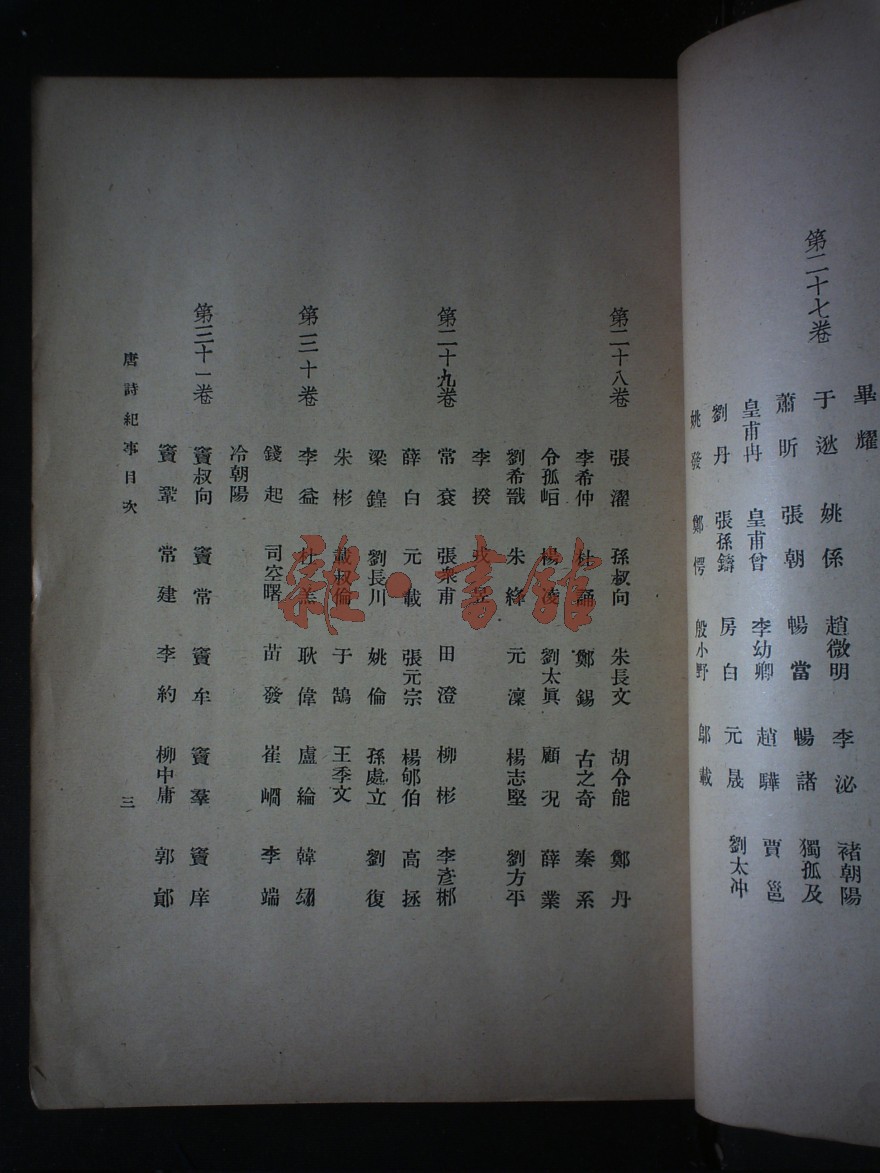 畢耀
于逖 姚係 趙微明 李泌 褚朝陽
蕭昕 張朝 暢當 暢諸 獨孤及
皇甫冉 皇甫曾 李幼卿 趙驊 賈邕
劉丹 張孫鑄 房白 元晟 劉太冲
姚發 鄭愕 殷小野 鄔載
第二十七卷
第二十八卷 張濯 孫叔向 朱長文 胡令能 鄭丹
李希仲 杜誦 鄭錫 古之奇 秦系
令孤峘 楊凌 劉太眞 顧況 薛業
劉希戩 朱絳 元凜 楊志堅 劉方平
李揆 戎昱
第二十九卷 常袞 張衆甫 田澄 柳彬 李彥郴
薛白 元載 張元宗 楊郇伯 高拯
梁鍠 劉長川 姚倫 孫處立 劉復
朱彬 戴叔倫 于鵠 王季文
第三十卷 李益 杜羔 耿偉 盧綸 韓翃
錢起 司空曙 苗發 崔峒 李端
冷朝陽
第三十一卷 竇叔向 竇常 竇牟 竇羣 竇庠
竇鞏 常建 李約 柳中庸 郭鄖
唐詩紀事目次 三
雜·書館